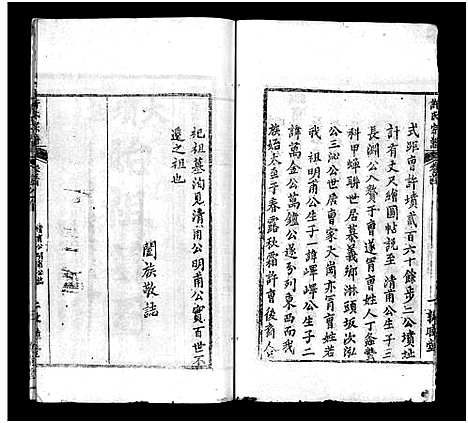 許氏宗譜
式距曾許墳貳百六十餘步二公墳址
計有丈尺繪圖帖說至清甫公生子三
長淵公入贅于曾遂冐曾姓人丁叅蟄
科甲蟬聯世居墓義鄉淋頭坂次泓
公三沁公世居曾家大嵵亦冐曾姓若
我祖明甫公生子一諱嶧嶧公生子二
諱萬金公萬鐘公遂分列東西而我
族始太至于春露秋霜許曾後裔人
祀祖墓洵見清甫公明甫公實百世不
遷之祖也
闔族敬誌